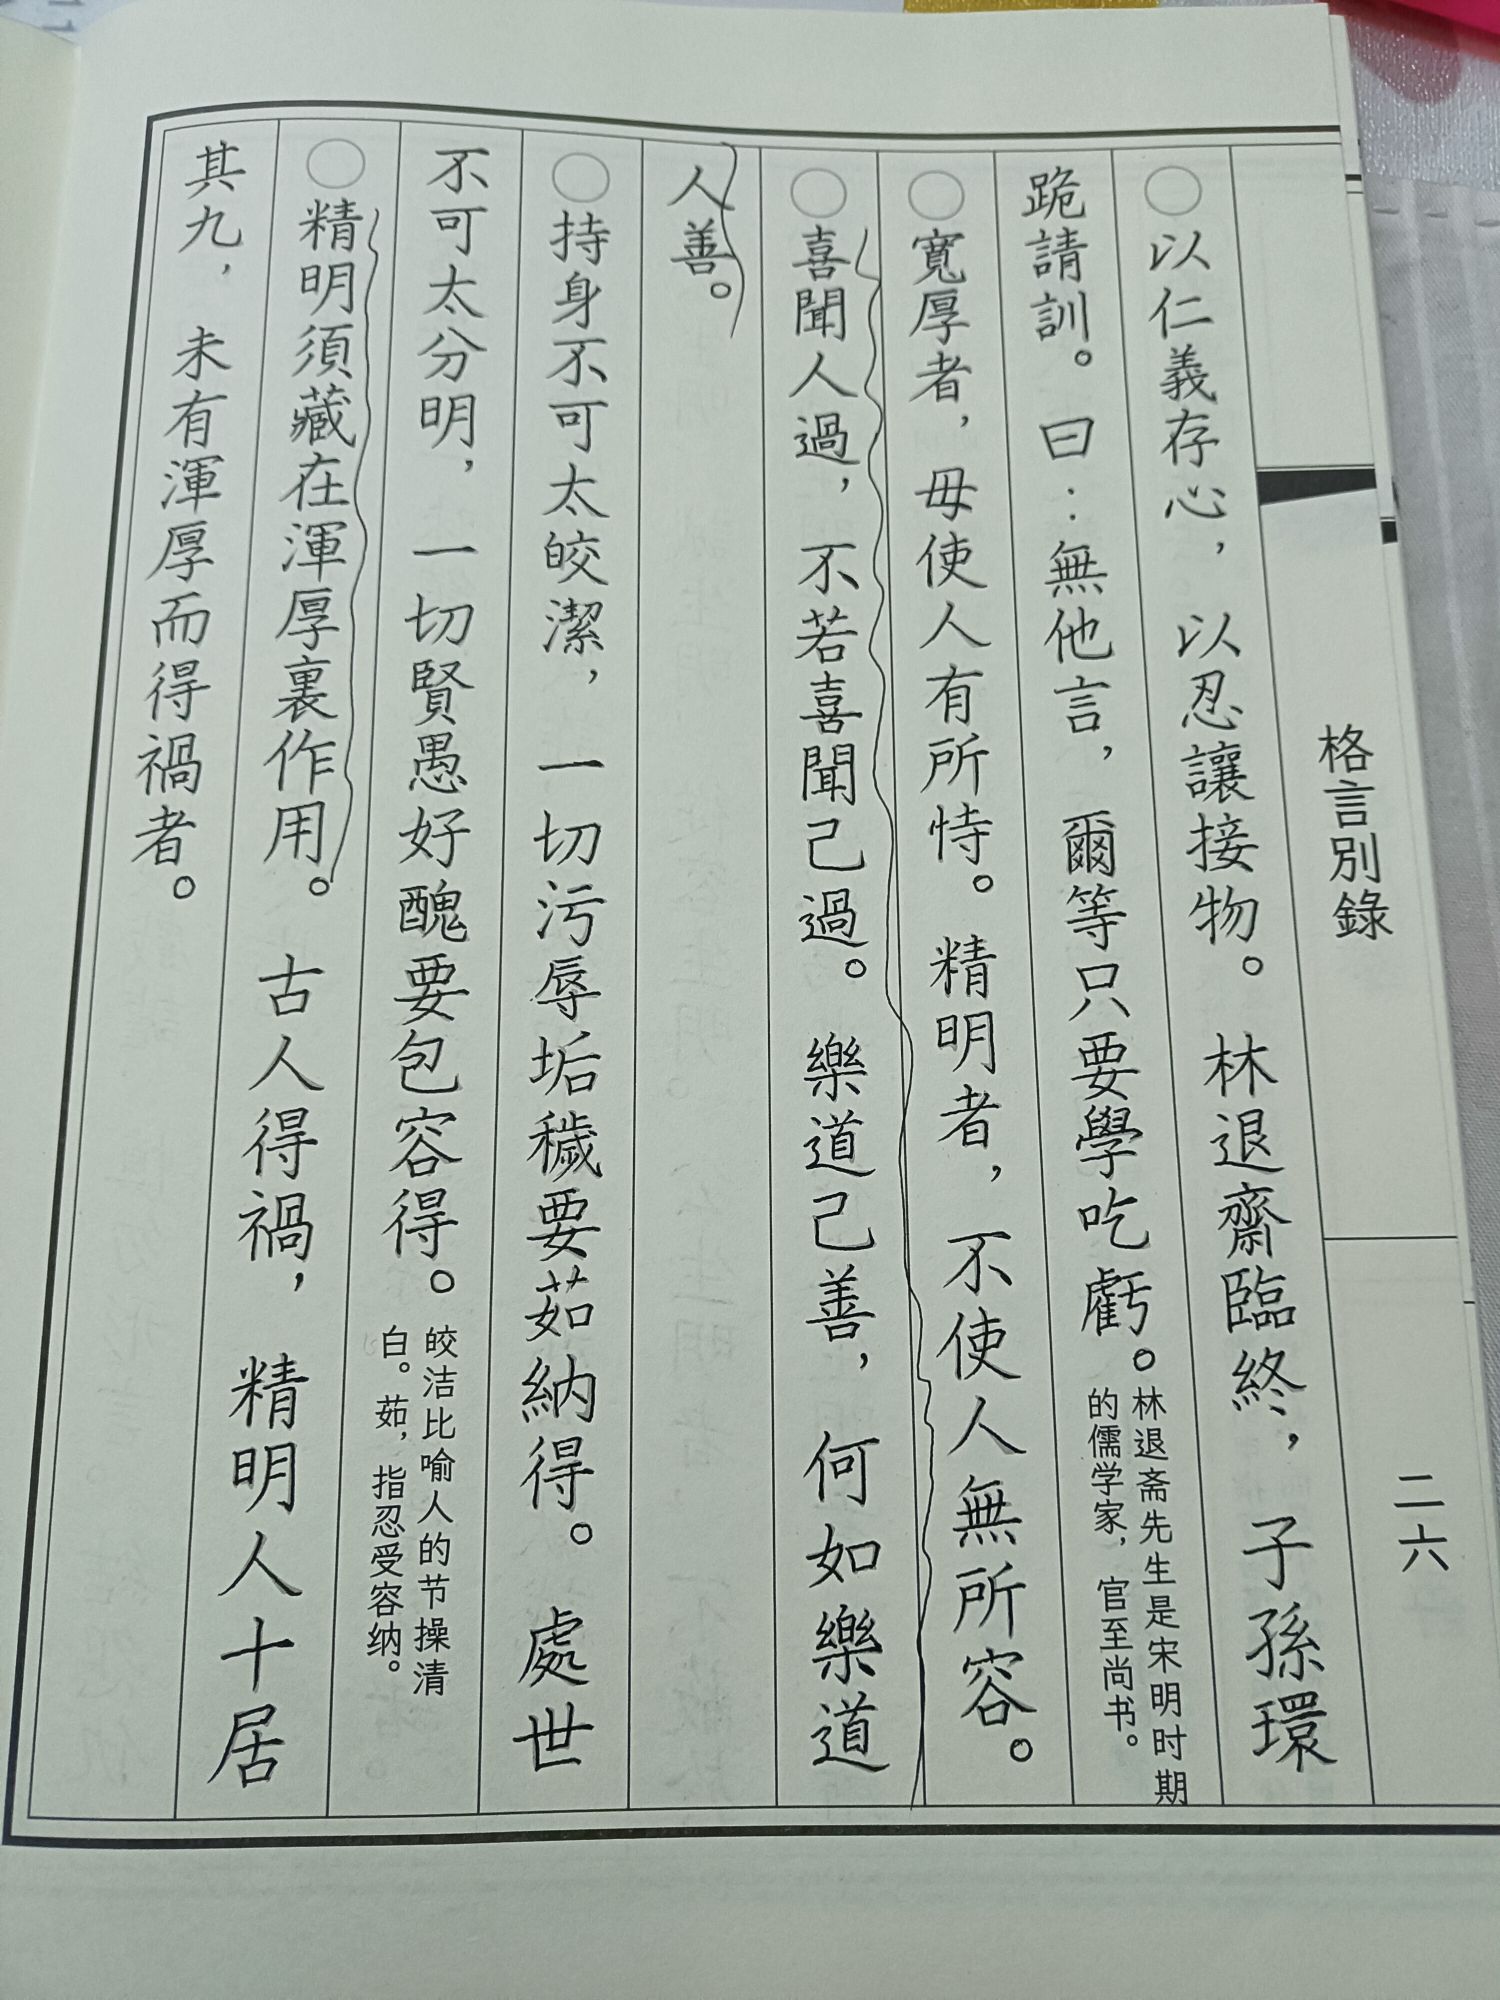 格言別錄
二六
○以仁義存心，以忍讓接物。林退齋臨終，子孫環
跪請訓。曰：無他言，爾等只要學吃虧。林退斋先生是宋明时期
的儒学家，官至尚书。
○寬厚者，毋使人有所恃。精明者，不使人無所容。
○喜聞人過，不若喜聞己過。樂道己善，何如樂道
人善。
○持身不可太皎潔，一切污辱垢穢要茹納得。處世
不可太分明，一切賢愚好醜要包容得。皎洁比喻人的节操清
白。茹，指忍受容纳。
○精明須藏在渾厚裏作用。古人得禍，精明人十居
其九，未有渾厚而得禍者。